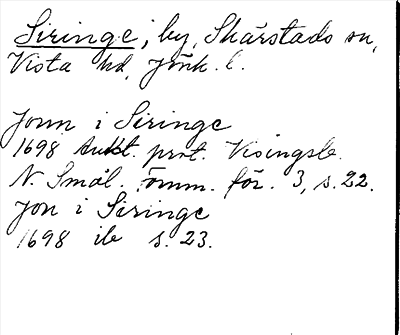 Siringe, by, Skärstads sn,
Vista hd, Jönk. l.
Jonn i Siringe
1698 Aukt. prot. Visingsb.
N. Smål. fornm. för. 3, s. 22.
Jon i Siringe
1698 ib s. 23.